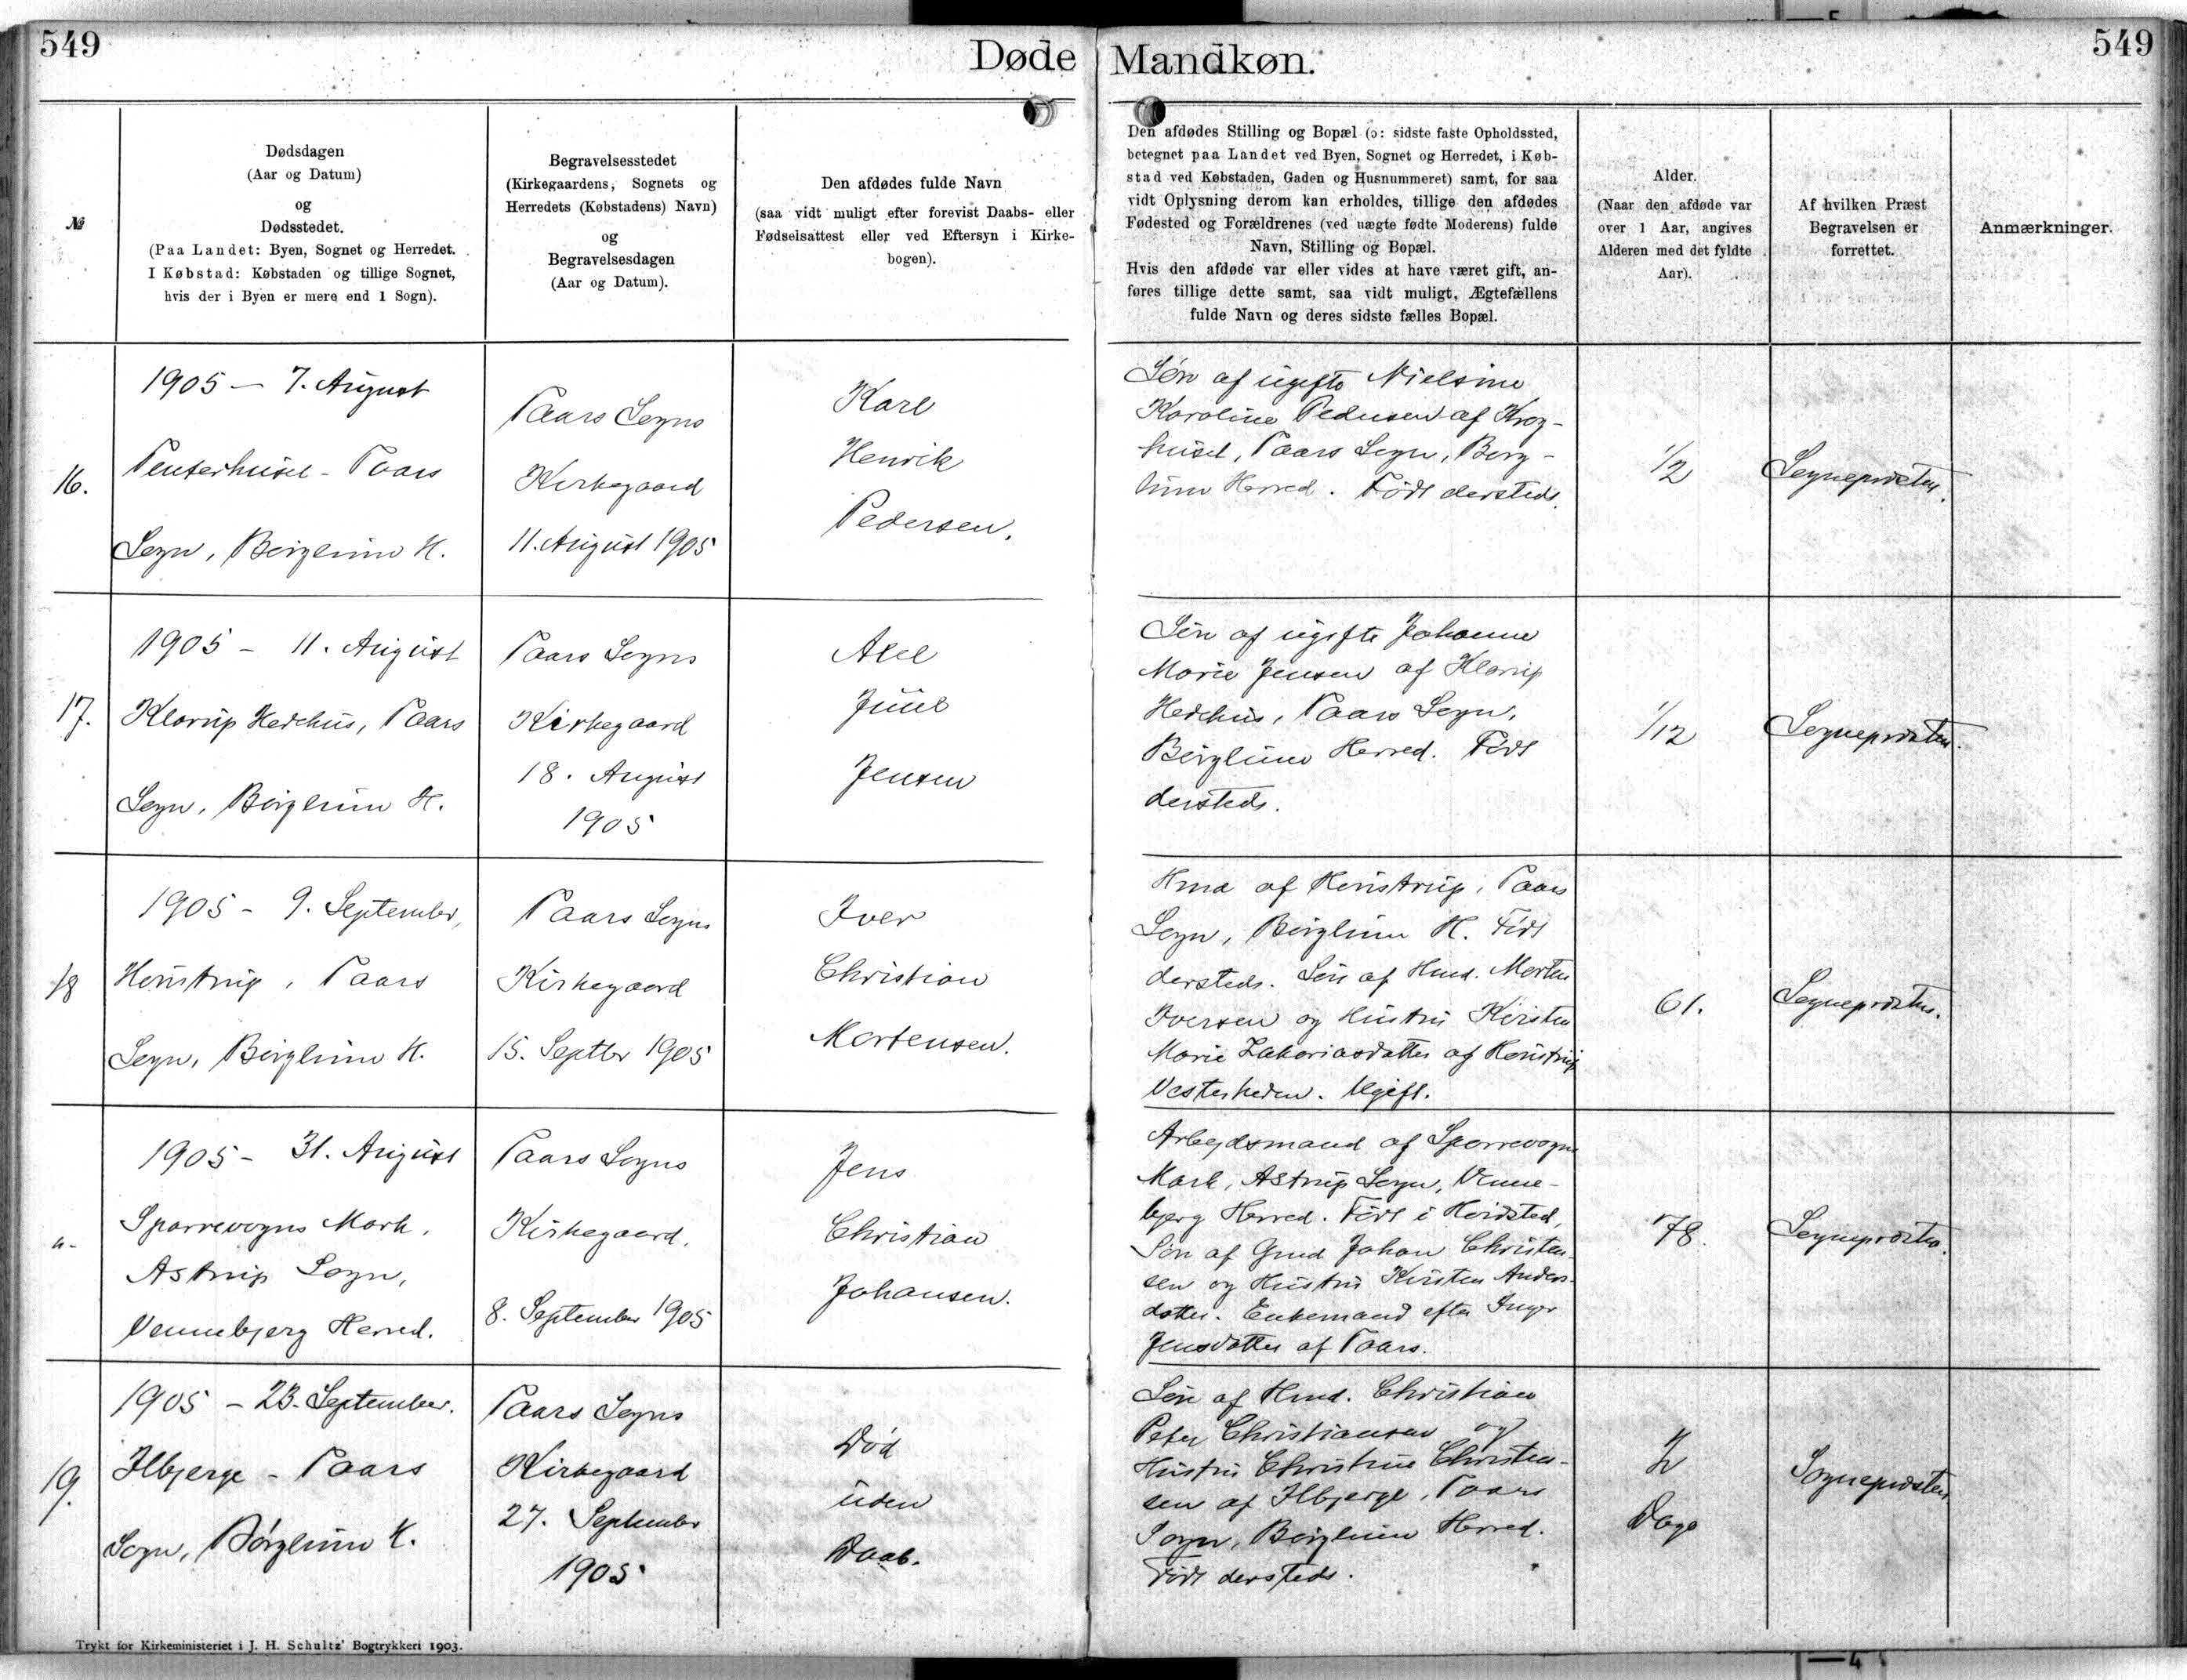 549
Døde Mandkøn.
549
№
Dødsdagen
(Aar og Datum)
og
Dødsstedet.
(Paa Landet: Byen, Sognet og Herredet.
I Købstad: Købstaden og tillige Sognet,
hvis der i Byen er mere end 1 Sogn).
Begravelsesstedet
(Kirkegaardens, Sognets og
Herredets (Købstadens) Navn)
og
Begravelsesdagen
(Aar og Datum).
Den afdødes fulde Navn
(saa vidt muligt efter forevist Daabs- eller
Fødselsattest eller ved Eftersyn i Kirke-
bogen).
Den afdødes Stilling og Bopæl (ɔ: sidste faste Opholdssted,
betegnet paa Landet ved Byen, Sognet og Herredet, i Køb-
stad ved Købstaden, Gaden og Husnummeret) samt, for saa
vidt Oplysning derom kan erholdes, tillige den afdødes
Fødested og Forældrenes (ved uægte fødte Moderens) fulde
Navn, Stilling og Bopæl.
Hvis den afdøde var eller vides at have været gift, an-
føres tillige dette samt, saa vidt muligt, Ægtefællens
fulde Navn og deres sidste fælles Bopæl.
Alder.
(Naar den afdøde var
over 1 Aar, angives
Alderen med det fyldte
Aar).
Af hvilken Præst
Begravelsen er
forrettet.
Anmærkninger.
16.
1905 – 7. August
Taars
Sogn, Børglum H.
Taars Sogns
Kirkegaard
11. August 1905
Karl
Henrik
Pedersen.
Søn af ugifte Nielsine
Karoline Pedersen af Krog-
huset, Taars Sogn, Børg-
lum Herred. Født dersteds.
1/2
Sognepræsten.
17.
1905 – 11. August
Klarup Hedehus, Taars
Sogn, Børglum H.
Taars Sogns
Kirkegaard
18. August
1905
Axel
Juul
Jensen
Søn af ugifte Johanne
Marie Jensen af Klarup
Hedehus, Taars Sogn,
Børglum Herred. Født
dersteds.
1/12
Sognepræsten.
18
1905 – 9. September,
Hønstrup, Taars
Sogn, Børglum H.
Taars Sogns
Kirkegaard
15. Septbr 1905
Iver
Christian
Mortensen.
Hmd af Hønstrup, Taars
Sogn, Børglum H. Født
dersteds. Søn af Hmd. Morten
Iversen og Hustru Kirsten
Marie Zakariasdatter af Hønstrup
Vesterheden. Ugift.
61.
Sognepræsten.
"-
1905 – 31. August
Sparrevogns Mark,
Astrup Sogn,
Vennebjerg Herred.
Taars Sogns
Kirkegaard,
8. September 1905
Jens
Christian
Johansen.
Arbejdsmand af Sparrevogns
Mark, Astrup Sogn, Venne-
bjerg Herred. Født i Hvidsted,
Søn af Gmd Johan Christen-
sen og Hustru Kirsten Anders-
datter. Enkemand efter Inger
Jensdatter af Taars.
78.
Sognepræsten.
19.
1905 – 23. September.
Ilbjerge – Taars
Sogn, Børglum H.
Taars Sogns
Kirkegaard
27. September
1905
Død
uden
Daab.
Søn af Hmd. Christian
Peter Christiansen og
Hustru Christine Christen-
sen af Ilbjerge, Taars
Sogn, Børglum Herred.
Født dersteds.
1/2
Dage
Sognepræsten.
Trykt for Kirkeministeriet i J. H. Schultz' Bogtrykkeri 1903.